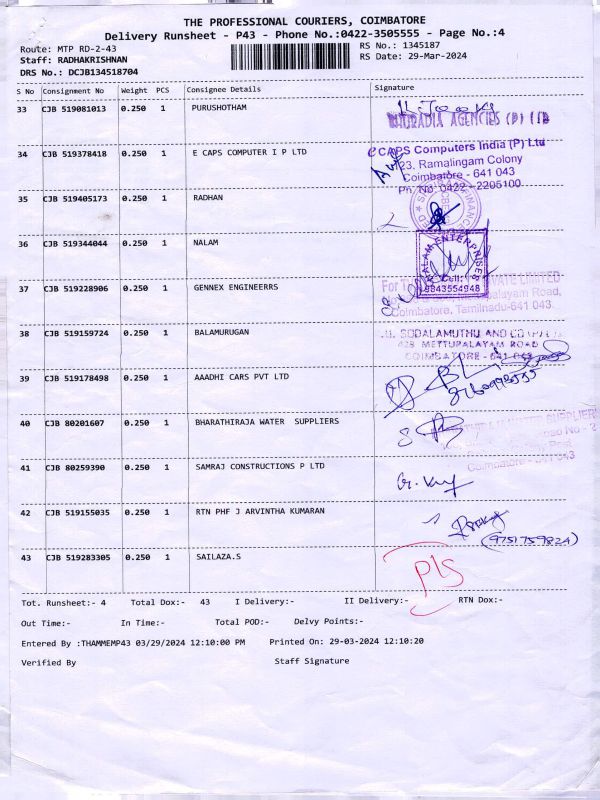 THE PROFESSIONAL COURIERS, COIMBATORE
Delivery Runsheet - P43 - Phone No.:0422-3505555 - Page No.:4
Route: MTP RD-2-43 RS No.: 1345187
Staff: RADHAKRISHNAN RS Date: 29-Mar-2024
DRS No.: DCJB134518704
S No Consignment No Weight PCS Consignee Details Signature
33 CJB 519081013 0.250 1 PURUSHOTHAM
AGENCIES (P) LTD
34 CJB 519378418 0.250 1 E CAPS COMPUTER I P LTD
eCAPS Computers India (P) Ltd
23, Ramalingam Colony
Coimbatore - 641 043
Ph. No. 0422 - 2205100
35 CJB 519405173 0.250 1 RADHAN
36 CJB 519344044 0.250 1 NALAM
NALAM ENTERPRISES
Cell:
9843554948
37 CJB 519228906 0.250 1 GENNEX ENGINEERRS
For PRIVATE LIMITED
palayam Road,
Coimbatore, Tamilnadu-641 043.
38 CJB 519159724 0.250 1 BALAMURUGAN
SODALAMUTHU AND CO (P) LTD
428 METTUPALAYAM ROAD
COIMBATORE - 641 043
39 CJB 519178498 0.250 1 AAADHI CARS PVT LTD
40 CJB 80201607 0.250 1 BHARATHIRAJA WATER SUPPLIERS
WATER SUPPLIERS
No - 2
Post
Coimbatore - 641 043
41 CJB 80259390 0.250 1 SAMRAJ CONSTRUCTIONS P LTD
42 CJB 519155035 0.250 1 RTN PHF J ARVINTHA KUMARAN
(9751759824)
43 CJB 519283305 0.250 1 SAILAZA.S
P/S
Tot. Runsheet:- 4 Total Dox:- 43 I Delivery:- II Delivery:- RTN Dox:-
Out Time:- In Time:- Total POD:- Delvy Points:-
Entered By :THAMMEMP43 03/29/2024 12:10:00 PM Printed On: 29-03-2024 12:10:20
Verified By Staff Signature